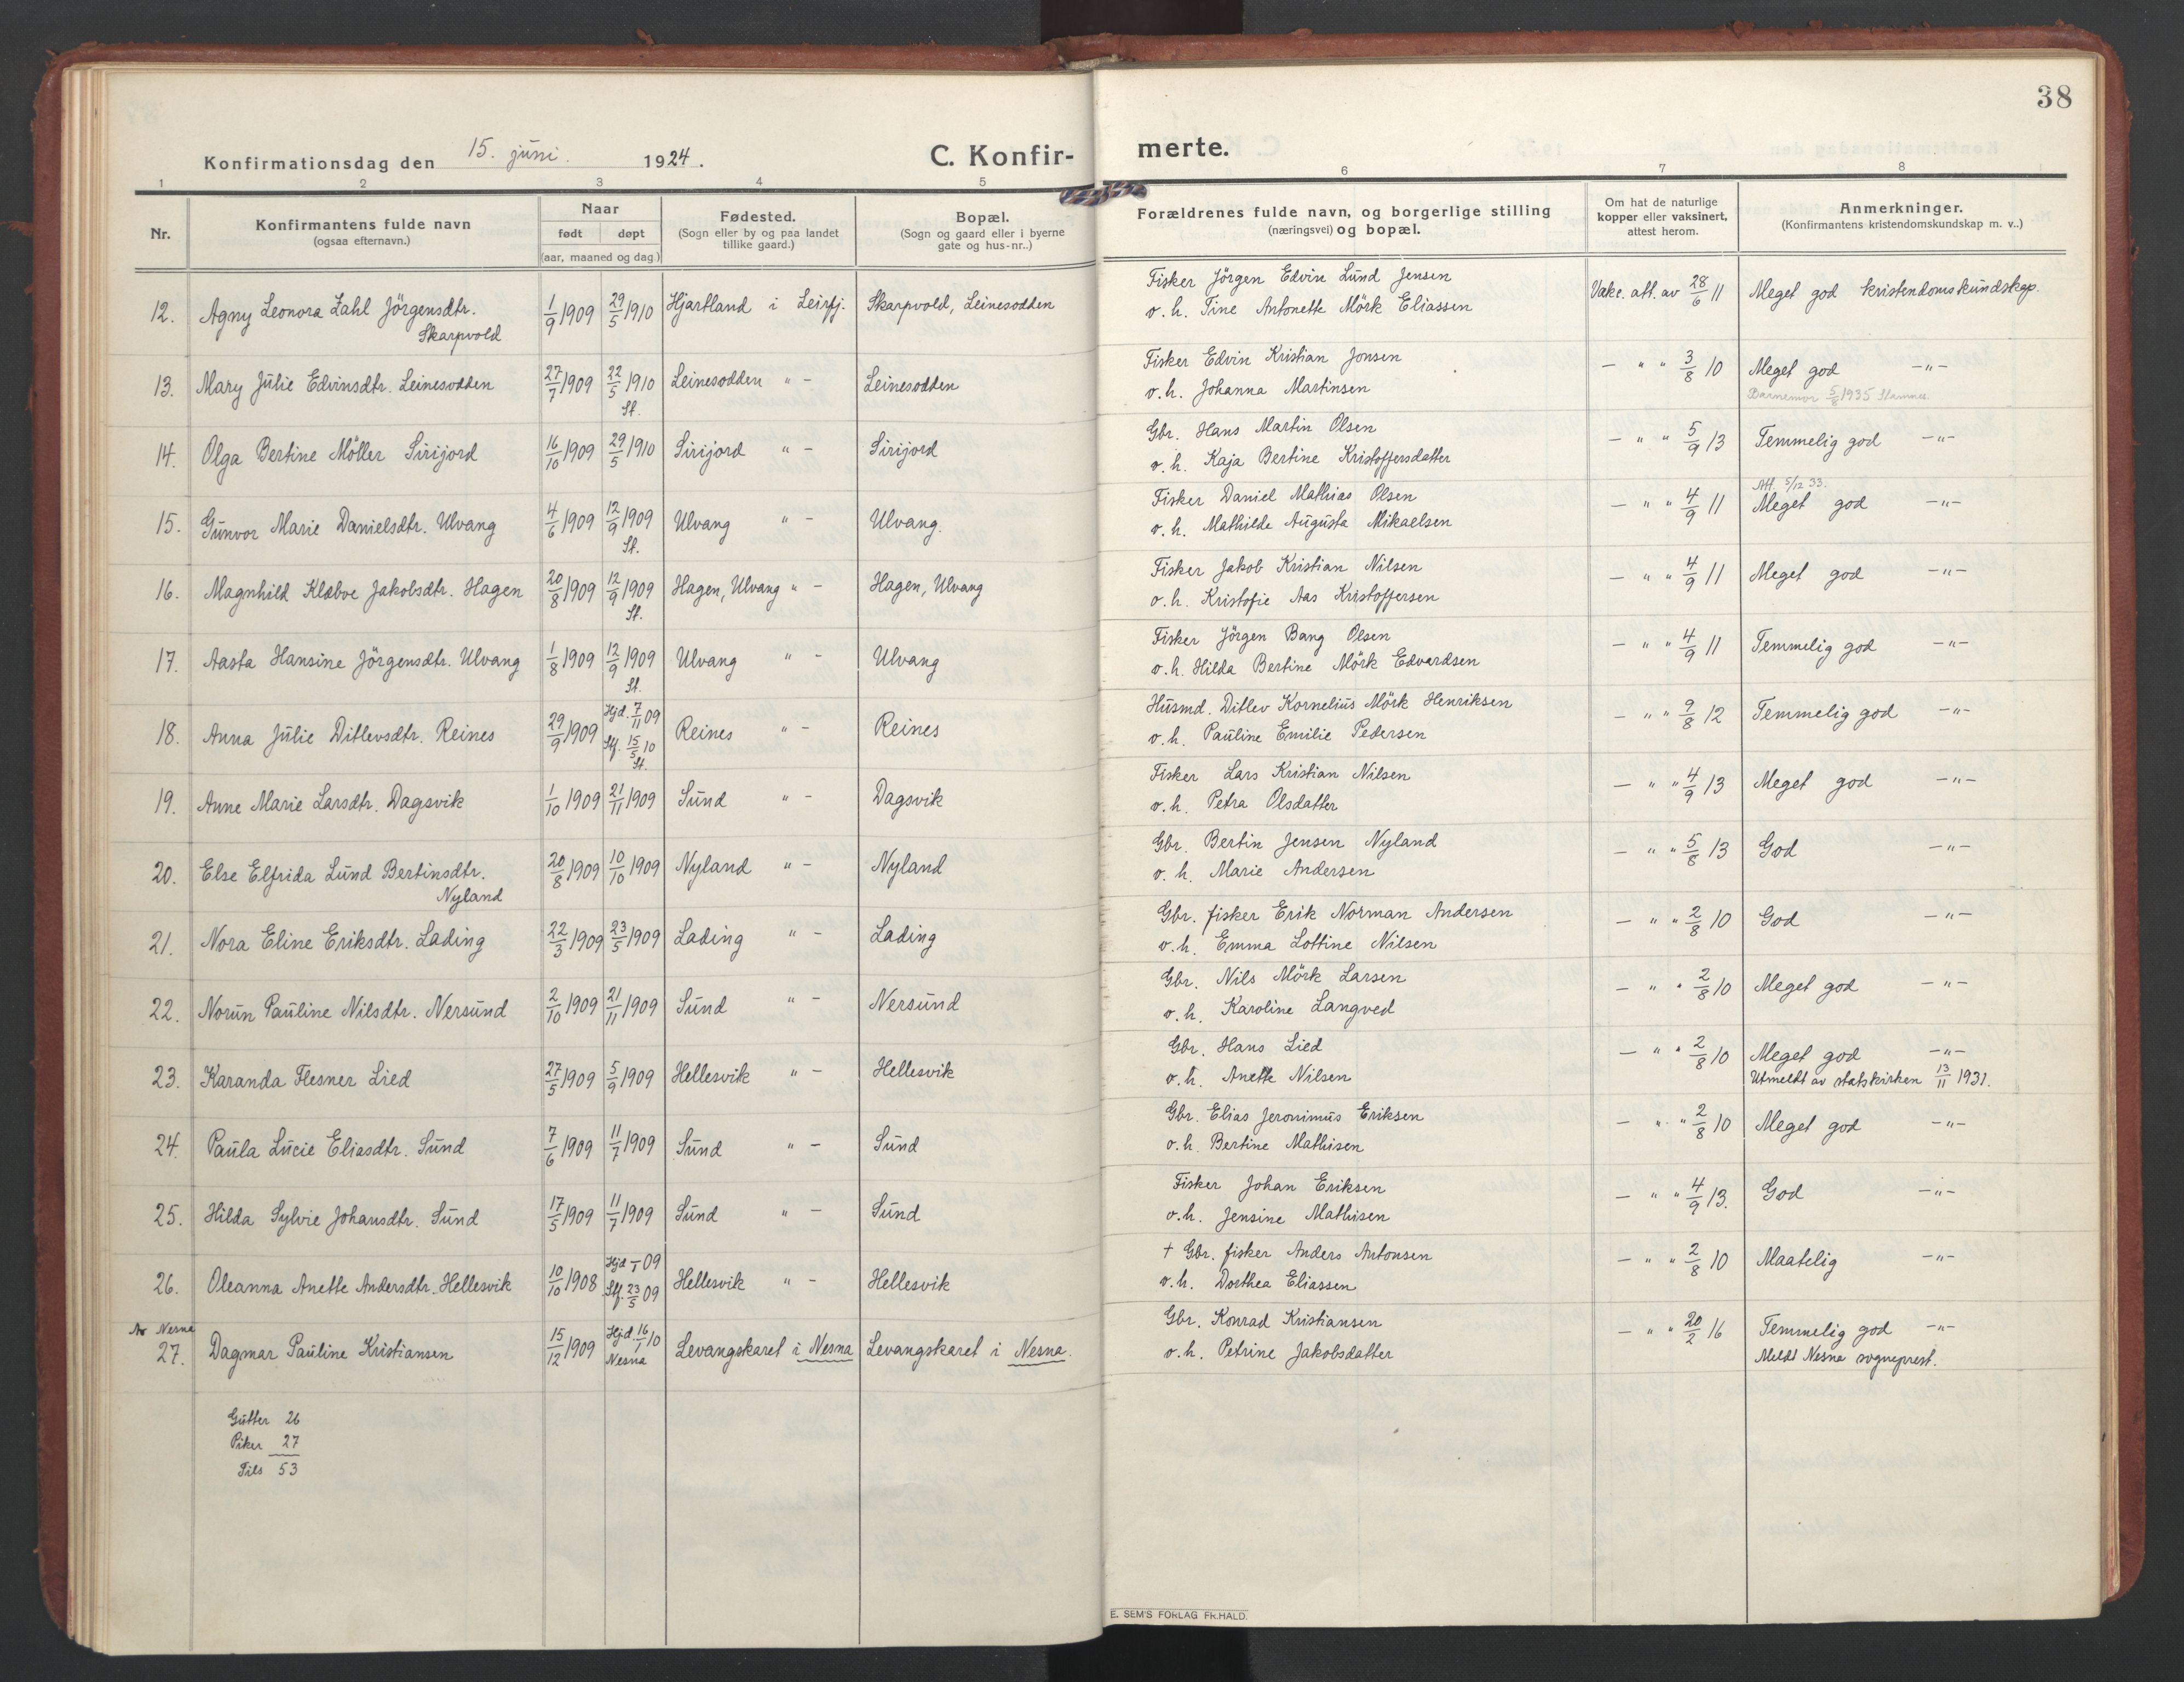 38
Konfirmationsdag den 15. juni. 1924.
C. Konfir-
merte.
1 2 3 4 5 6 7 8
Nr.
Konfirmantens fulde navn
(ogsaa efternavn.)
Naar
født døpt
(aar, maaned og dag.)
Fødested.
(Sogn eller by og paa landet
tillike gaard.)
Bopæl.
(Sogn og gaard eller i byerne
gate og hus-nr..)
Forældrenes fulde navn, og borgerlige stilling
(næringsvei) og bopæl.
Om hat de naturlige
kopper eller vaksinert,
attest herom.
Anmerkninger.
(Konfirmantens kristendomskundskap m. v..)
12. Agny Leonora Zahl Jörgensdtr. 1/9 1909 29/5 1910 Hjartland i Leirfj. Skarpvold, Leinesodden Fisker Jörgen Edvin Lund Jensen Vakc. att. av 28/6 11 Meget god kristendomskundskap.
Skarpvold o. h. Tine Antonette Mörk Eliassen
13. Mary Julie Edvinsdtr. Leinesodden 27/7 1909 22/5 1910 Leinesodden " - Leinesodden Fisker Edvin Kristian Jonsen - " " 3/8 10 Meget god -"-
St. o. h. Johanna Martinsen Barnemor 5/8 1935 Stamnes.
14. Olga Bertine Möller Sirijord 16/10 1909 29/5 1910 Sirijord " - Sirijord Gbr. Hans Martin Olsen - " " 5/9 13 Temmelig god -"-
o. h. Kaja Bertine Kristoffersdatter
Att. 5/12 33.
15. Gunvor Marie Danielsdtr. Ulvang 4/6 1909 12/9 1909 Ulvang " - Ulvang. Fisker Daniel Mathias Olsen - " " 4/9 11 Meget god -"-
St. o. h. Mathilde Augusta Mikaelsen
16. Magnhild Klæboe Jakobsdtr. Hagen 20/8 1909 12/9 1909 Hagen, Ulvang " - Hagen, Ulvang Fisker Jakob Kristian Nilsen - " " 4/9 11 Meget god -"-
St. o. h. Kristofie Aas Kristoffersen
17. Aasta Hansine Jörgensdtr. Ulvang 1/8 1909 12/9 1909 Ulvang " - Ulvang Fisker Jörgen Bang Olsen - " " 4/9 11 Temmelig god -"-
St. o. h. Hilda Bertine Mörk Edvardsen
18. Anna Julie Ditlevsdtr. Reines 29/9 1909 Hjd. 7/11 09 Reines " - Reines Husmd. Ditlev Kornelius Mörk Henriksen - " " 9/8 12 Temmelig god -"-
Stf. 15/5 10 o. h. Pauline Emilie Pedersen
St.
19. Anne Marie Larsdtr. Dagsvik 1/10 1909 21/11 1909 Sund " - Dagsvik Fisker Lars Kristian Nilsen - " " 4/9 13 Meget god -"-
o. h. Petra Olsdatter
20. Else Elfrida Lund Bertinsdtr. 20/8 1909 10/10 1909 Nyland " - Nyland Gbr. Bertin Jensen Nyland - " " 5/8 13 God -"-
Nyland o. h. Marie Andersen
21. Nora Eline Eriksdtr. Lading 22/3 1909 23/5 1909 Lading " - Lading Gbr. fisker Erik Norman Andersen - " " 2/8 10 God -"-
o. h. Emma Lottine Nilsen
22. Norun Pauline Nilsdtr. Nersund 2/10 1909 21/11 1909 Sund " - Nersund Gbr. Nils Mörk Larsen - " " 2/8 10 Meget god -"-
o. h. Karoline Langved
23. Karanda Flesner Lied 27/5 1909 5/9 1909 Hellesvik " - Hellesvik Gbr. Hans Lied - " " 2/8 10 Meget god -"-
o. h. Anette Nilsen Utmeldt av statskirken 13/11 1931.
24. Paula Lucie Eliasdtr. Sund 7/6 1909 11/7 1909 Sund " - Sund Gbr. Elias Jeronimus Eriksen - " " 2/8 10 Meget god -"-
o. h. Bertine Mathisen
25. Hilda Sylvie Johansdtr. Sund 17/5 1909 11/7 1909 Sund " - Sund Fisker Johan Eriksen - " " 4/9 13. God -"-
o. h. Jensine Mathisen
26. Oleanna Anette Andersdtr. Hellesvik 10/10 1908 Hjd -/1 09 Hellesvik " - Hellesvik + Gbr. fisker Anders Antonsen - " " 2/8 10 Maatelig -"-
Stf. 23/5 09 o. h. Dorthea Eliassen
Av Nesna
27. Dagmar Pauline Kristiansen 15/12 1909 Hjd. 16/1 10 Levangskaret i Nesna Levangskaret i Nesna. Gbr. Konrad Kristiansen - " " 20/2 16 Temmelig god -"-
Nesna o. h. Petrine Jakobsdatter Meldt Nesna sogneprest.
Gutter 26
Piker 27
Tils 53
E. SEM'S FORLAG FR.HALD.